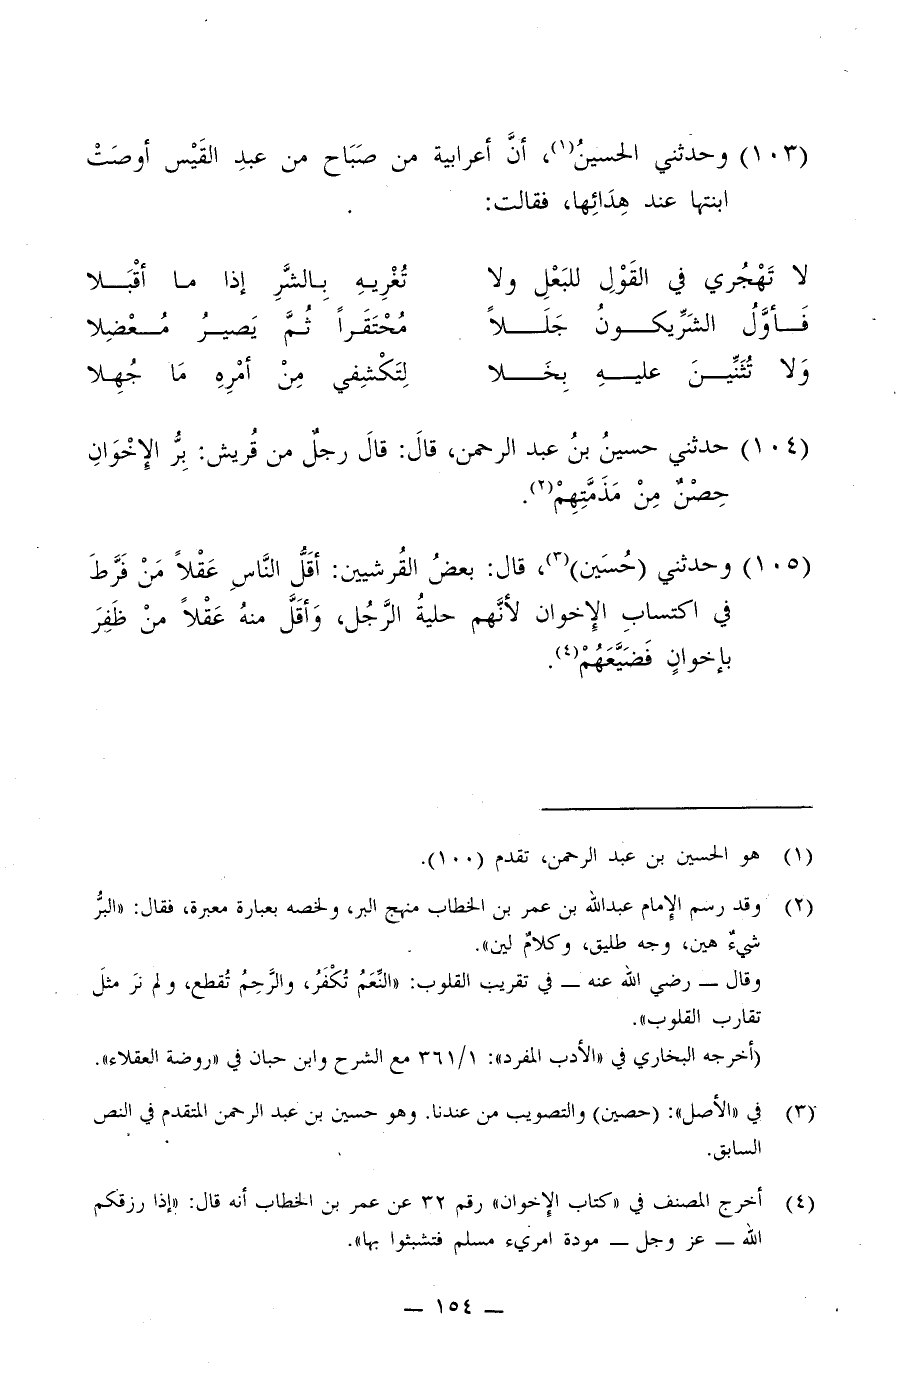 (١٠٣) وحدثني الحسينُ(١)، أنَّ أعرابية من صَبَاح من عبدِ القَيْس أوصَتْ
ابنتها عند هِدَائِها، فقالت:
لا تَهْجُري في القَوْلِ للبَعْلِ ولا تُغْرِيهِ بِالشَّرِّ إذا ما أقْبَلا
فَأوَّلُ الشَّرِّ يكونُ جَلَلاً مُحْتَقَراً ثُمَّ يَصيرُ مُعْضِلا
وَلا تُثَنِّينَ عليهِ بِخَلا لِتَكْشِفي مِنْ أمْرِهِ مَا جُهلا
(١٠٤) حدثني حسينُ بنُ عبد الرحمن، قالَ: قالَ رجلٌ من قُريش: بِرُّ الإِخْوَانِ
حِصْنٌ مِنْ مَذَمَّتِهِمْ(٢).
(١٠٥) وحدثني (حُسَين)(٣)، قال: بعضُ القُرشيين: أقَلُّ النَّاسِ عَقْلاً مَنْ فَرَّطَ
في اكتسابِ الإِخوان لأنَّهم حليةُ الرَّجُل، وَأقَلَّ منهُ عَقْلاً منْ ظَفِرَ
بإخوانٍ فَضَيَّعَهُمْ(٤).
(١) هو الحسين بن عبد الرحمن، تقدم (١٠٠).
(٢) وقد رسم الإِمام عبدالله بن عمر بن الخطاب منهج البر، ولخصه بعبارة معبرة، فقال: «البرُّ
شيءٌ هين، وجه طليق، وكلامٌ لين».
وقال ــ رضي الله عنه ــ في تقريب القلوب: «النِّعَمُ تُكْفَرُ، والرَّحِمُ تُقطع، ولم نرَ مثلَ
تقارب القلوب».
(أخرجه البخاري في «الأدب المفرد»: ٣٦١/١ مع الشرح وابن حبان في «روضة العقلاء».
(٣) في «الأصل»: (حصين) والتصويب من عندنا. وهو حسين بن عبد الرحمن المتقدم في النص
السابق.
(٤) أخرج المصنف في «كتاب الإِخوان» رقم ٣٢ عن عمر بن الخطاب أنه قال: «إذا رزقكم
الله ــ عز وجل ــ مودة امريء مسلم فتشبثوا بها».
ــ ١٥٤ ــ